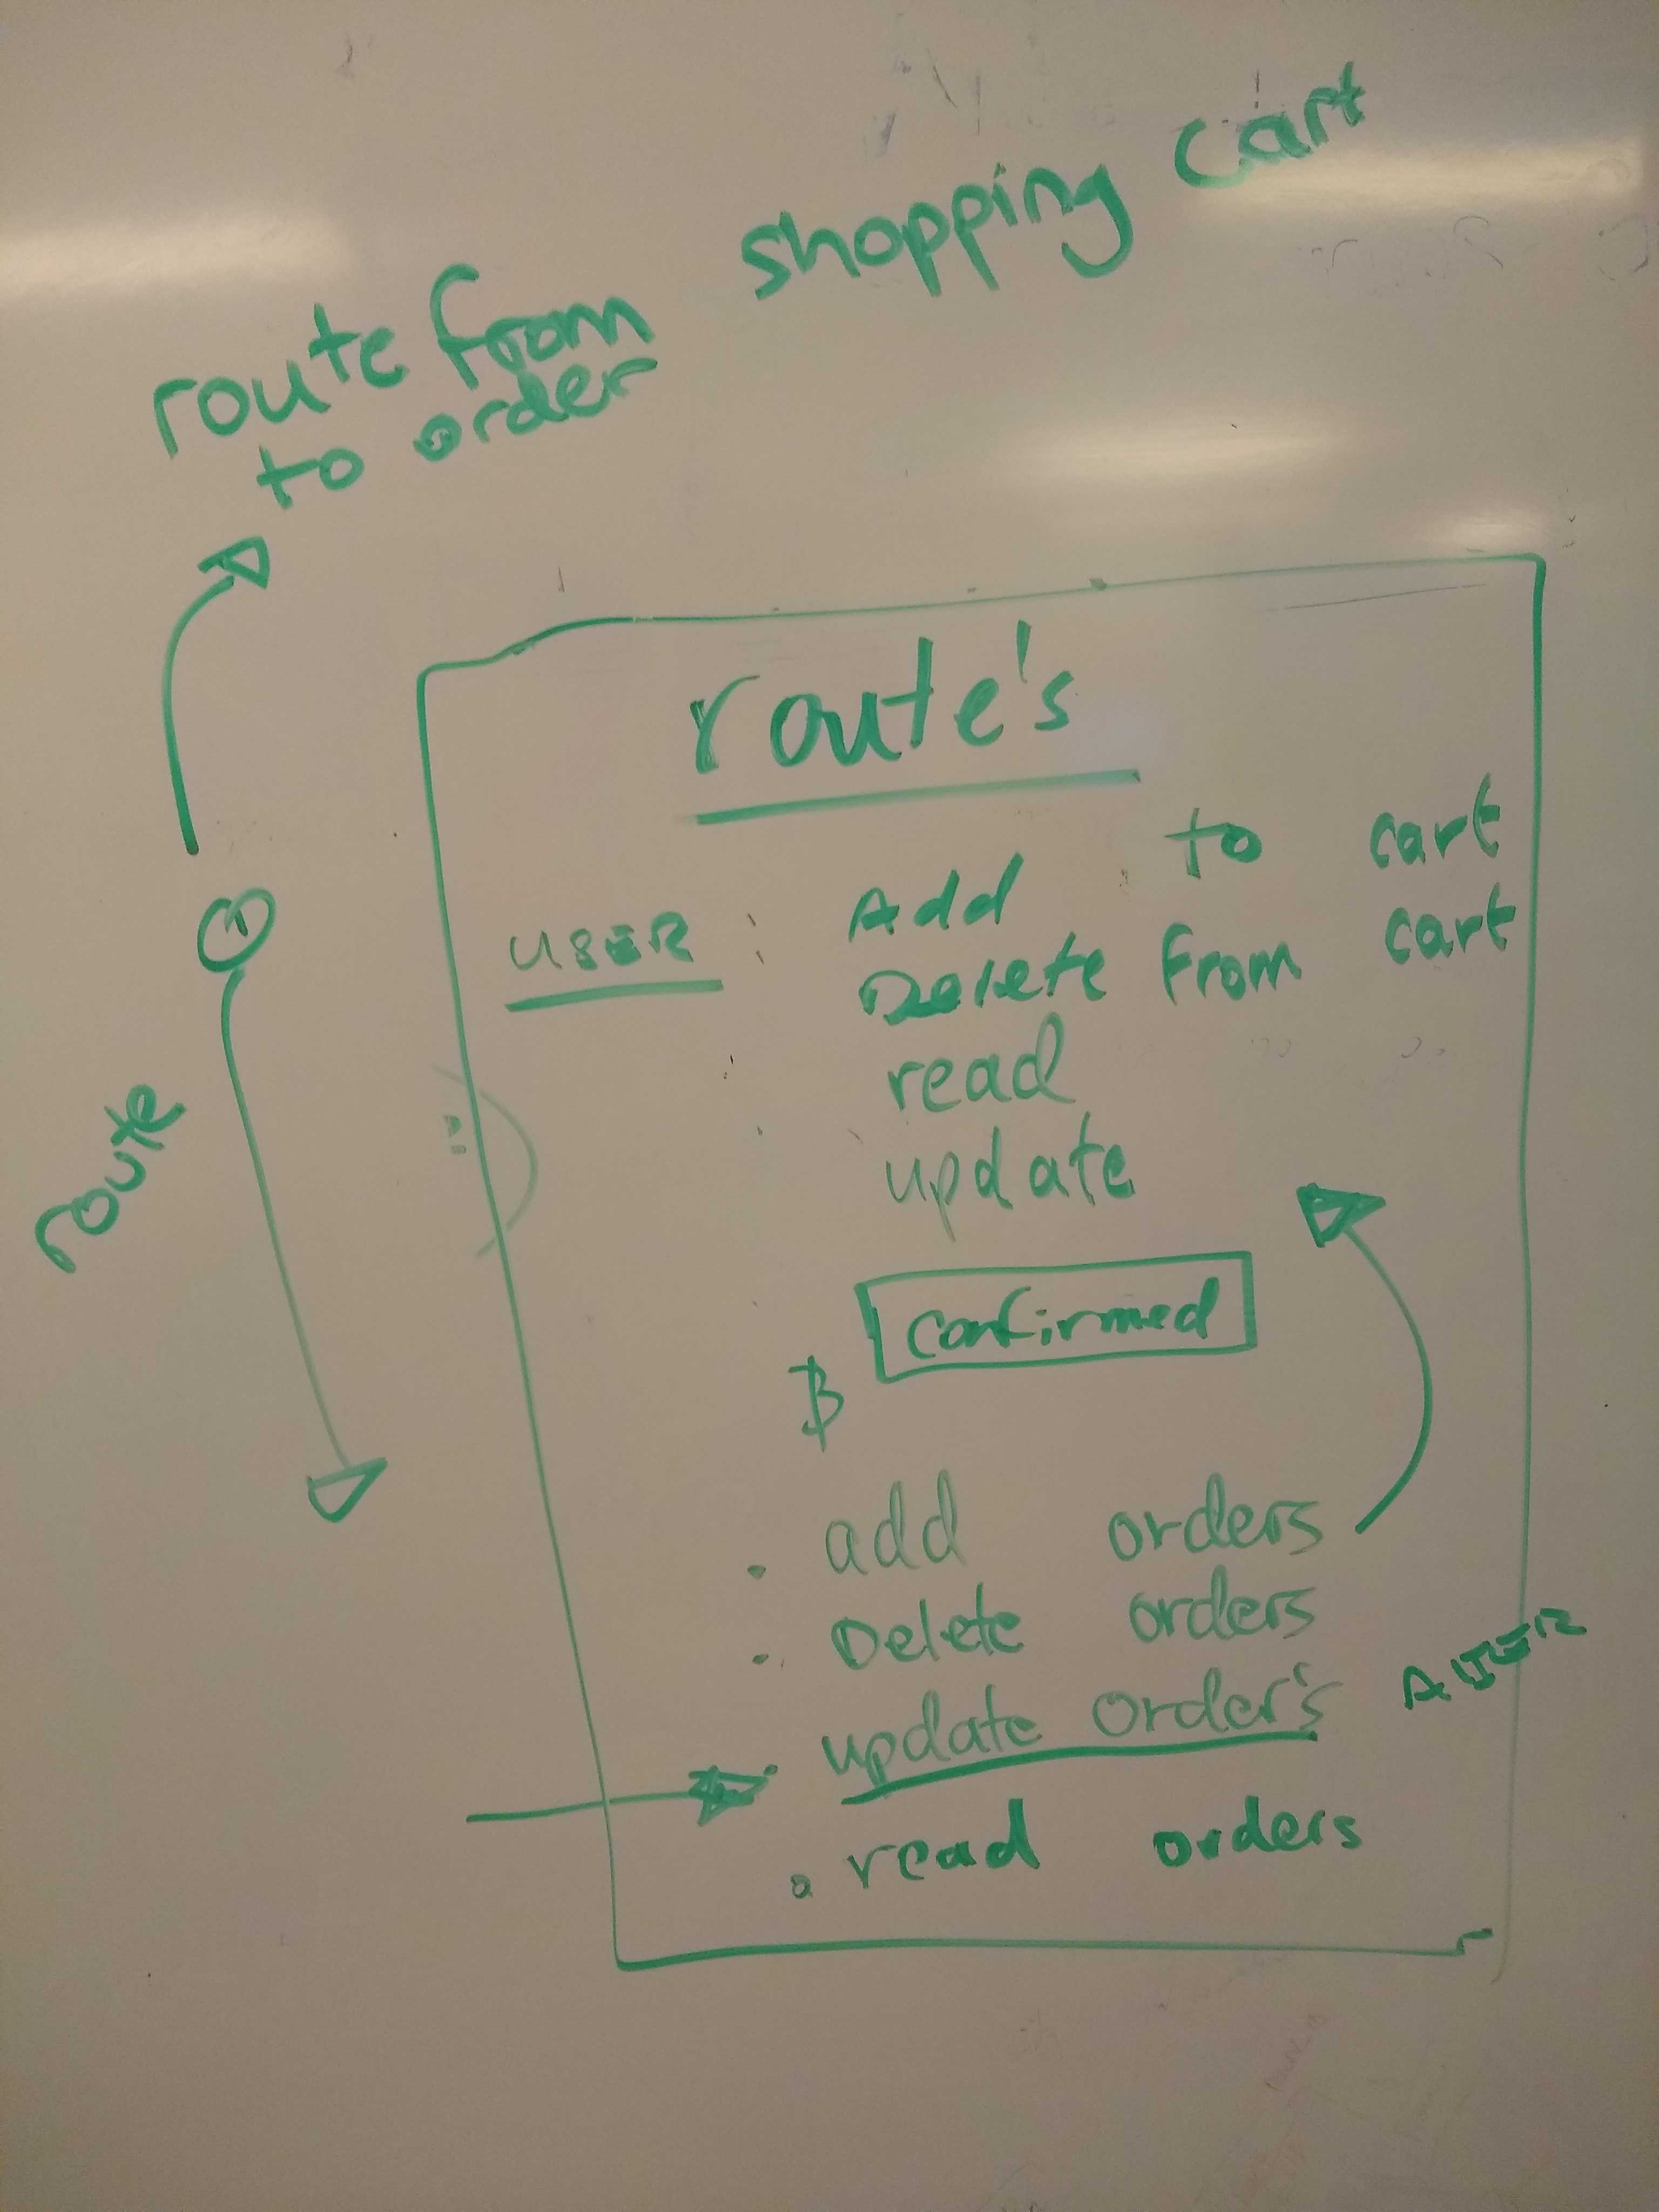 route from shopping cart
to order
route's
USER : Add to cart
Delete from cart
read
update
confirmed
$
. add orders
. Delete orders
. update order's
. read orders
route